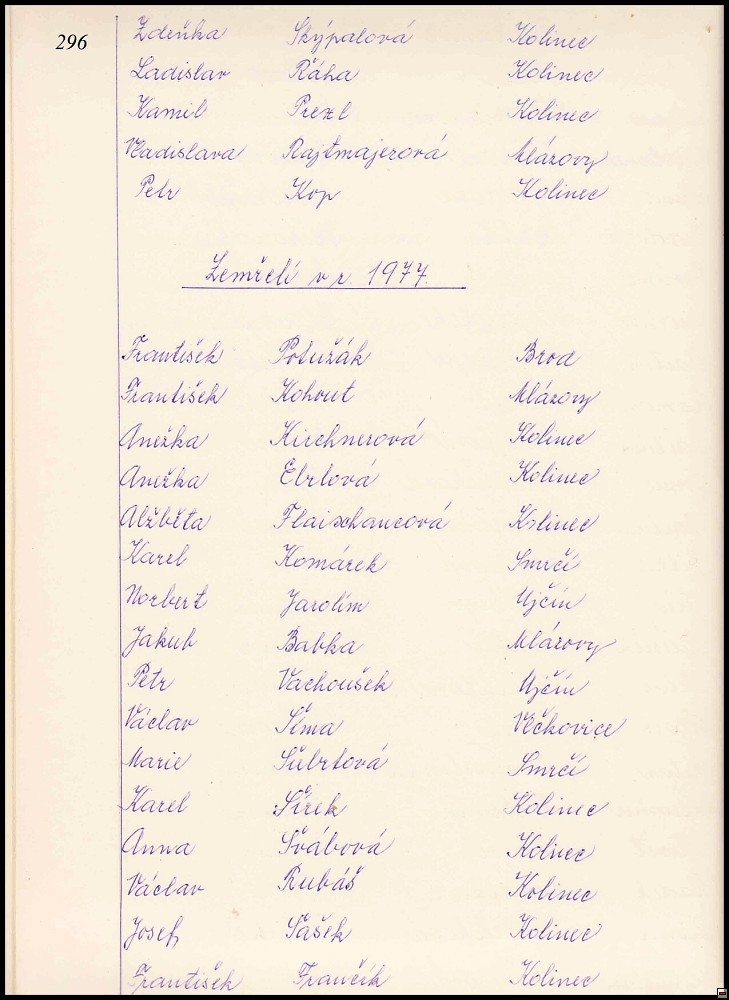 296
Zdeňka Skýpalová Kolinec
Ladislav Řáha Kolinec
Kamil Prexl Kolinec
Vladislava Rajtmajerová Mlázovy
Petr Kop Kolinec
Zemřelí v r. 1977.
František Potužák Brod
František Kohout Mlázovy
Anežka Kirchnerová Kolinec
Anežka Ebrlová Kolinec
Alžběta Flaischancová Kolinec
Karel Komárek Smrčí
Norbert Jarolím Ujčín
Jakub Babka Mlázovy
Petr Vachoušek Ujčín
Václav Šíma Vlčkovice
Marie Šubrtová Smrčí
Karel Šírek Kolinec
Anna Švábová Kolinec
Václav Rubáš Kolinec
Josef Šašek Kolinec
František Frančík Kolinec